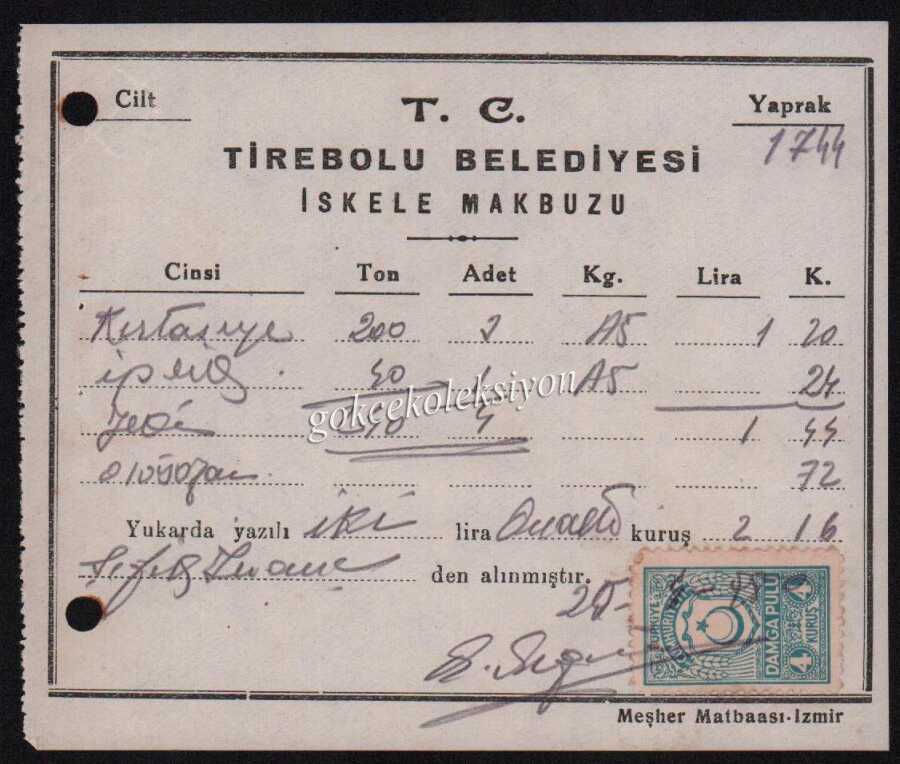 Cilt
T. C.
Yaprak
1744
TİREBOLU BELEDİYESİ
İSKELE MAKBUZU
Cinsi Ton Adet Kg. Lira K.
Kırtasiye 200 2 A5 1 20
40 A5 24
gokcekoleksiyon
4 1 44
72
Yukarda yazılı iki lira Onaltı kuruş 2 16
den alınmıştır.
TÜRKİYE
CUMHURİYETİ
DAMGA PULU
4 KURUŞ 4
Meşher Matbaası-Izmir